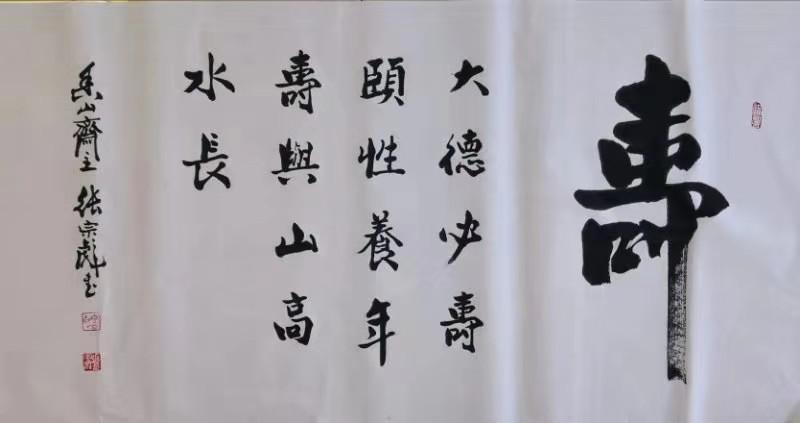 壽
大德必壽
頤性養年
壽與山高
水長
香山齋主張宗彪书